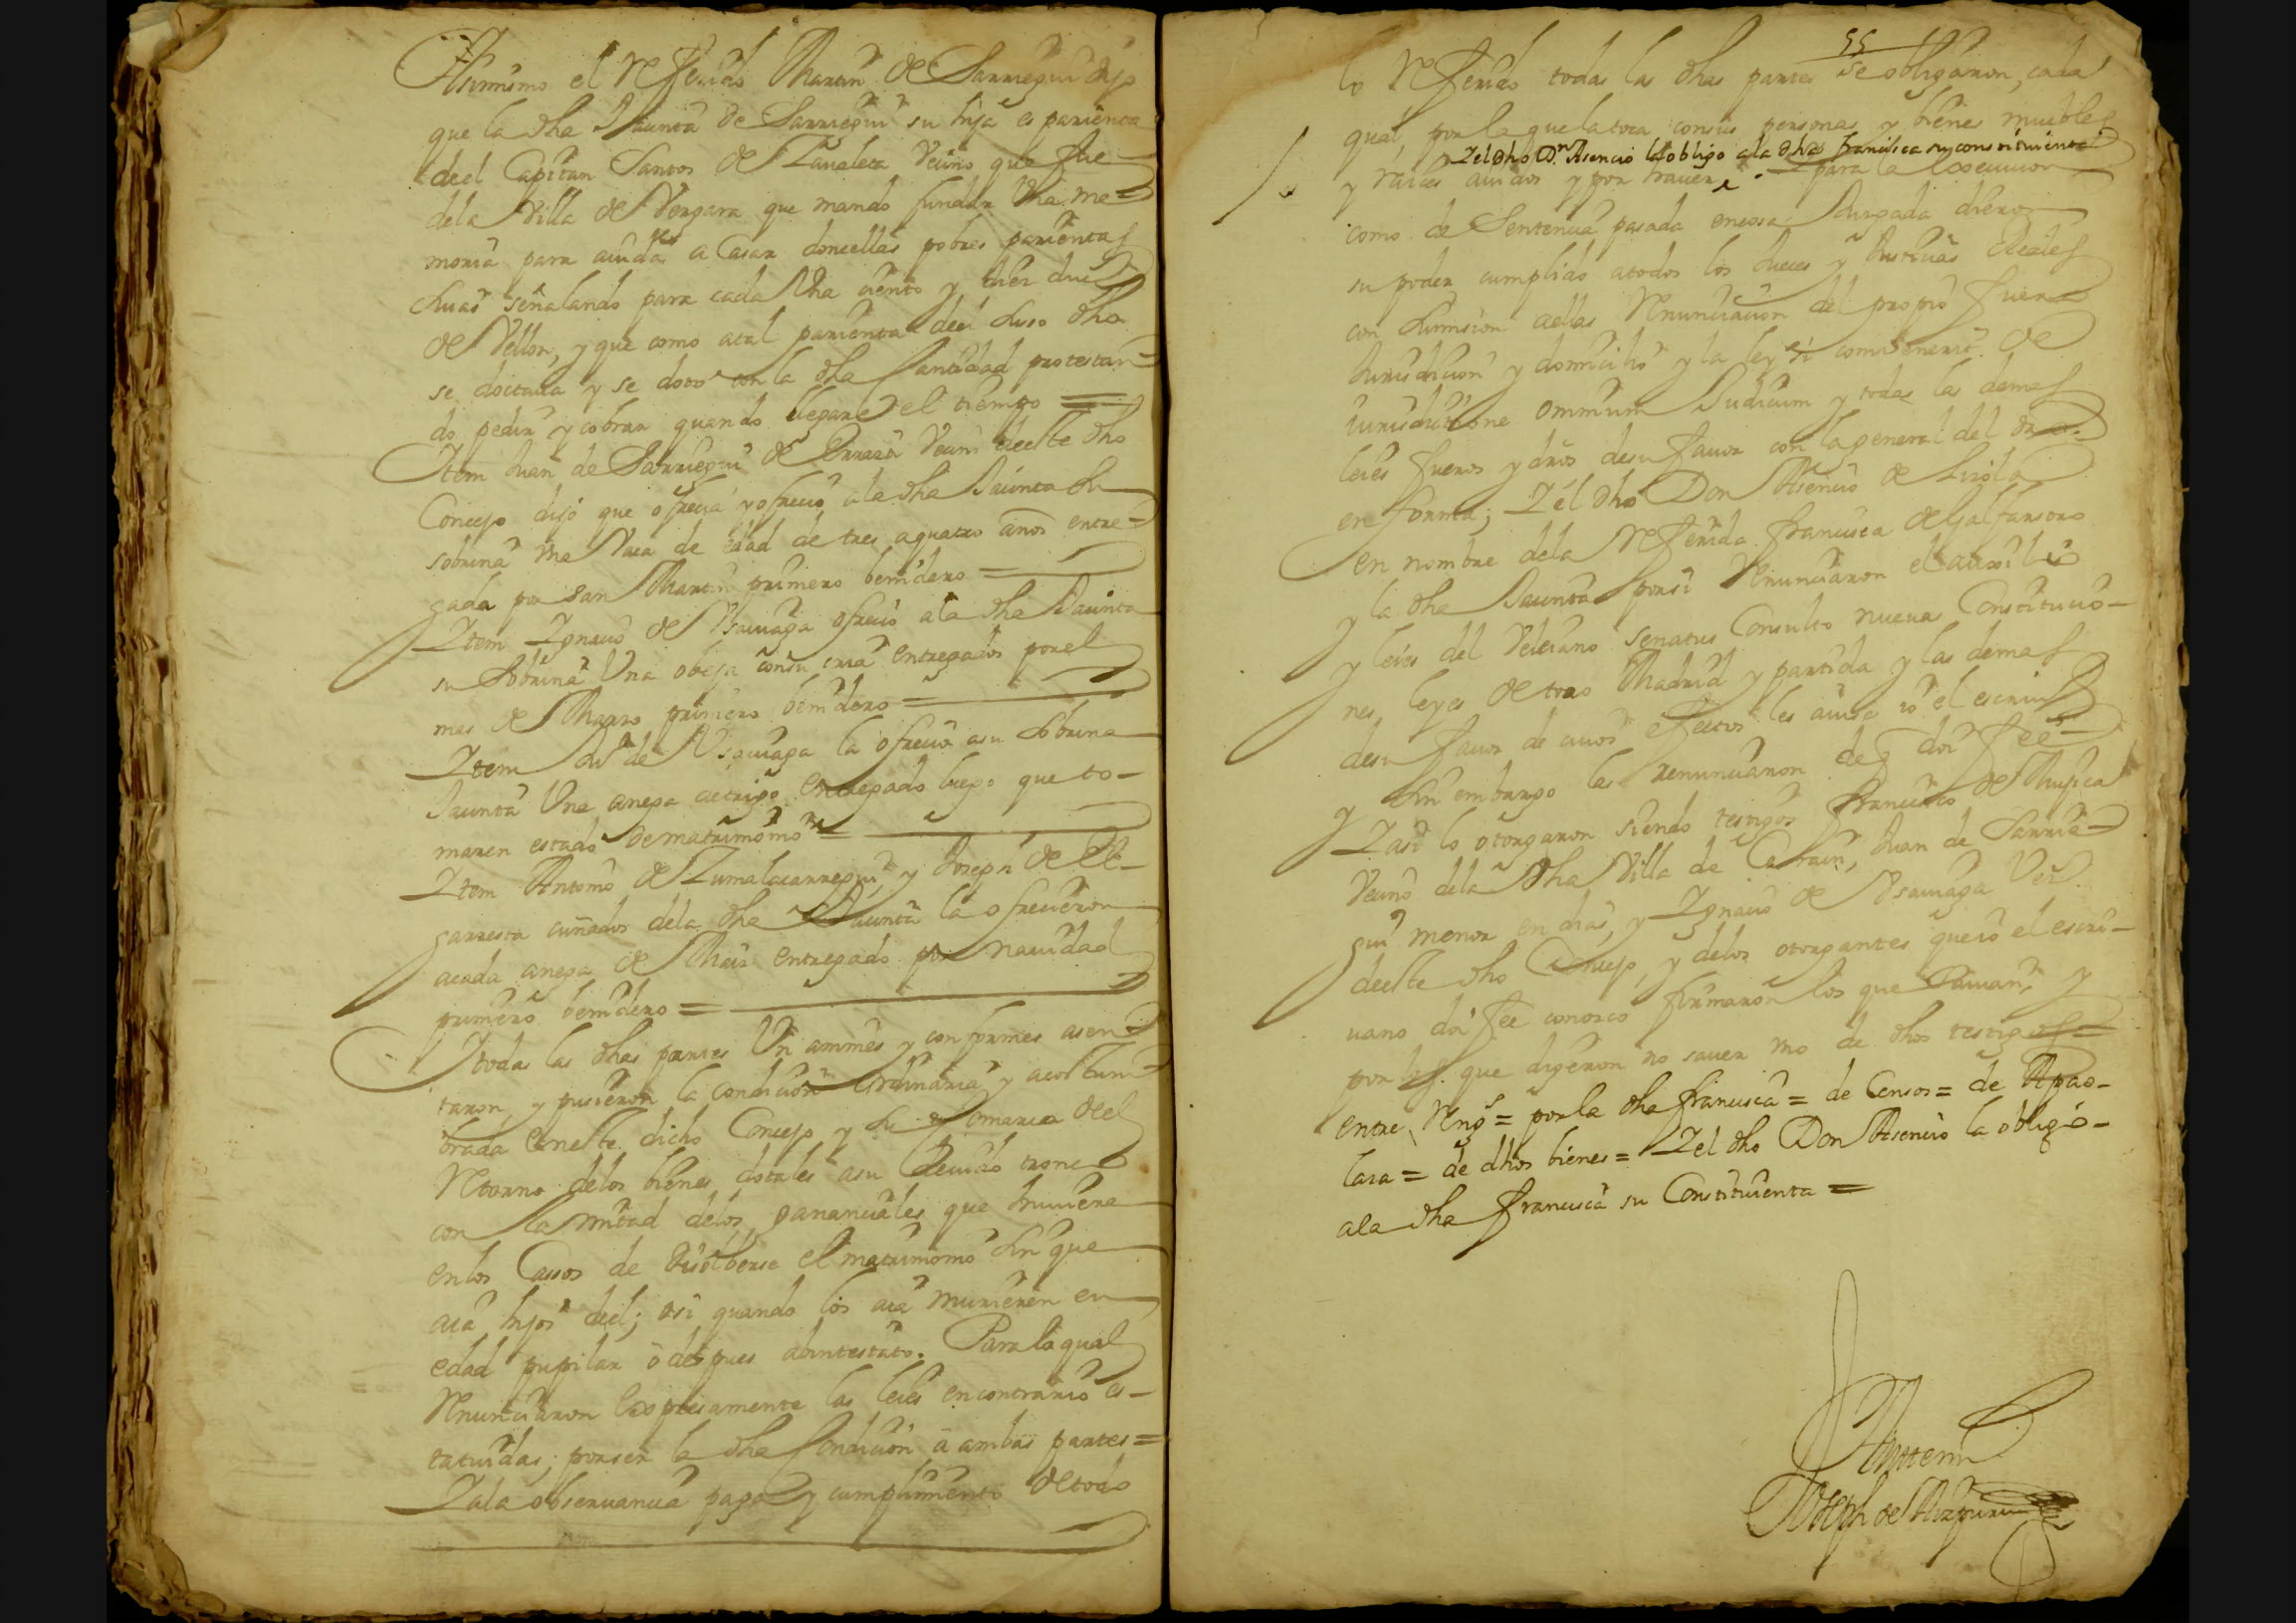 Asimismo el Referido Martin de Sarriegui dijo
que la dha Jaçinta de Sarriegui su hija es parienta
deel Capitan Santos de Zavaleta Veçino que fue
dela Villa de Vergara que mando fundar Vna me=
moria para aiudar a Casar doncellas pobres parientas
suias señalando para cada Vna çiento y diez duc.s
de Vellon, y que como atal parienta deel suso dho
se doctaua y se doto con la dha Cantidad protestan=
do pedir y cobrar quando llegare el tiempo =
Item Juan de Sarriegui de Veçino deeste dho
Concejo dijo que ofreçia y ofreçio ala dha Jaçinta su
sobrina vna Vaca de edad de tres aquatro años entre=
gada por San Martin primero benidero =
Item Ignaçio de Vsauiaga ofreçio ala dha Jaçinta
su Sobrina Vna obeja consu cria entregados por el
mes de Marzo primero benidero =
Item de Vsauiaga la ofreçio asu Sobrina
Jaçinta Vna anega detrigo entregado luego que to-
maren estado de matrimonio =
Item Antonio de Zumalacarregui y Joseph de
garresta cuñados dela dha Jaçinta la ofreçieron
acada anega de Maiz entregado por nauidad
primero benidero =
I todas las dhas partes Vn animes y conformes asen=
taron, y pusieron la condiçion ordinaria y acostum=
brada eneste dicho Concejo y su Comarca deel
Retorno delos bienes dotales asu deuido tronco
con la mitad delos gananciales que huuiere
enlos Cassos de disolberse el matrimonio sin que
aia hijos deel; osi quando los aia murieren en
edad pupilar o despues abintestato. Para lo qual
Renunçiaron Expresamente las leies encontrario es-
tatuidas; por ser la dha Condiçion a ambas partes =
I ala obseruançia paga y cumplimiento detodo
55
lo Referido todas las dhas partes se obligaron, cada
qual, por la quelatoca consus personas y bienes muebles
I el dho D.n Asencio la obligo ala dha françisca su constituienta
y raices auidos y por hauer para la Execuçion
como de Sentençia pasada encosa Juzgada dieron
su poder cumplido atodos los Jueçes y Justiçias Reales
con sumision aellas Renunçiaçion del propio fuero
Jurisdicion y domiçilio y la ley si combenerit de
iurisdictione omnium Judicum y todas las demas
leies fueros y dros desu fauor con la general del dro.
en forma; I el dho Don Asençio de
en nombre dela Referida françisca de Galfarsoro
y la dha Jaçinta por si Renunçiaron el auxilio
y leies del Veleiano Senatus Consulto nueuas Constituçio-
nes leyes de toro Madrid y partida y las demas
desu fauor de cuios efectos les auise io el escriu.o
y sin embargo las renunçiaron de q doi fee =
I asi lo otorgaron siendo testigos françisco de Mujica
Veçino dela dha Villa de Cegama, Juan de Sarrie=
gui menor en dias, y Ignaçio de Vsauiaga Vez.os
deeste dho Concejo, y delos otorgantes queio el escri-
uano doi fee conozco firmaron los que sauian, y
por los que dijeron no sauer vno de dhos testigos =
entre Reng.s = por la dha françisca = de Censos = de Apao-
laza = de dhos bienes = I el dho Don Asençio la obligo-
ala dha françisca su Constituienta =
Ante mi
Joseph de